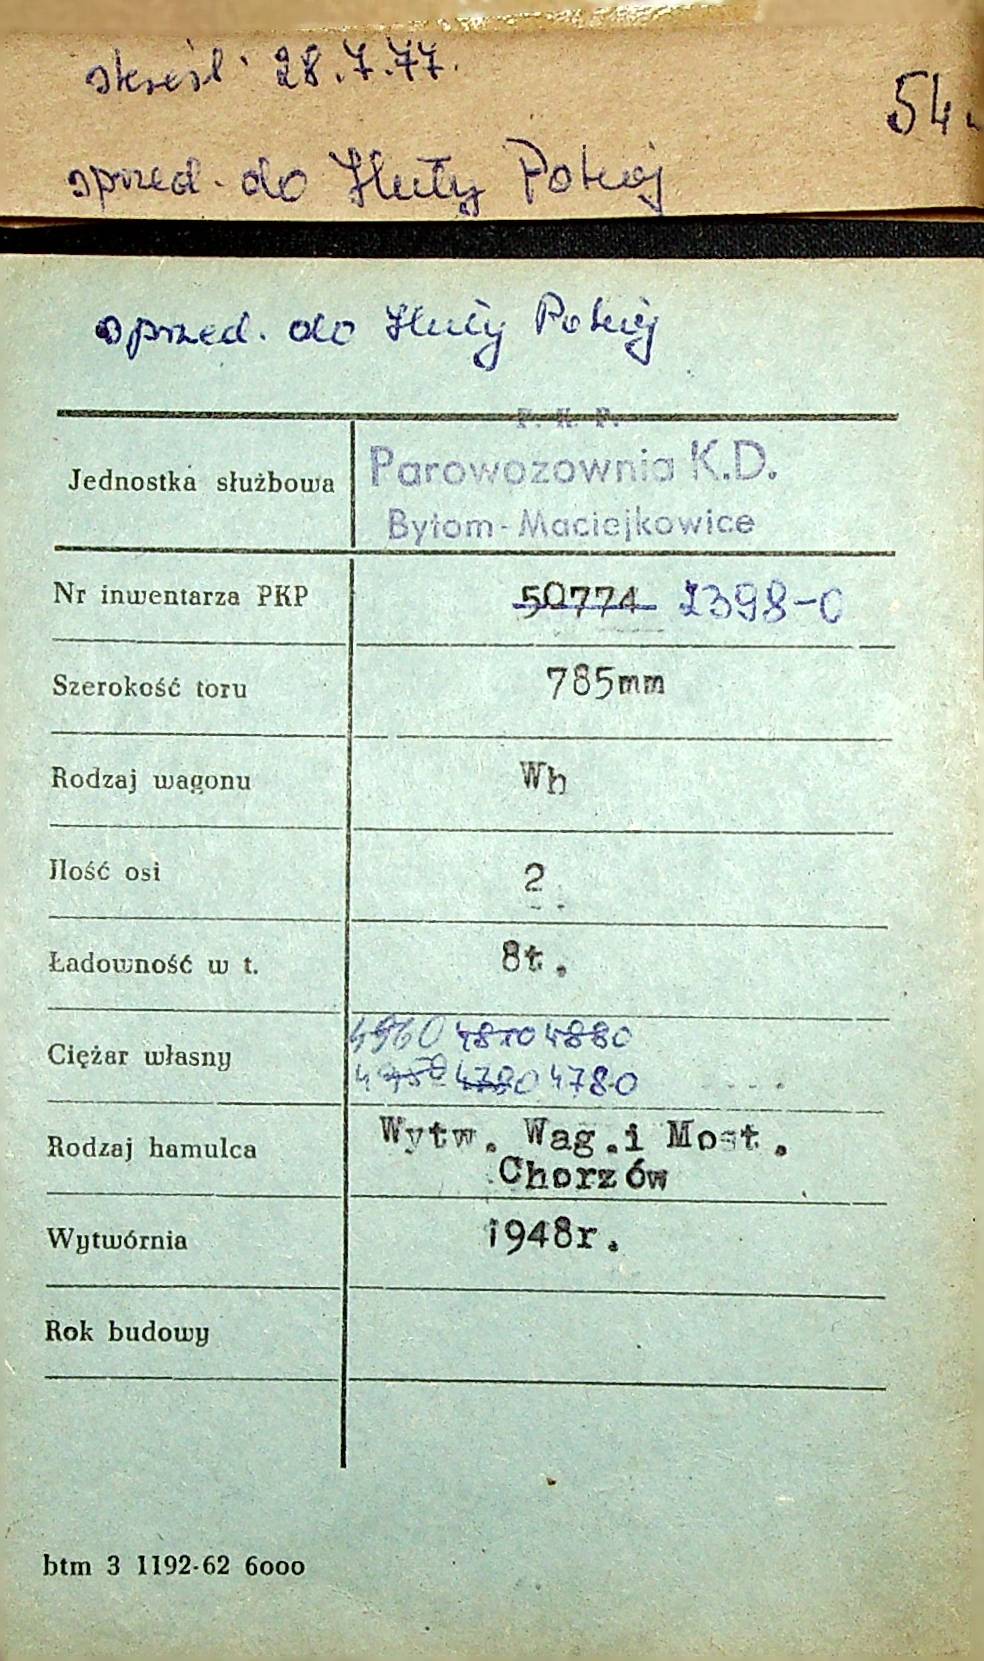 skreśl. 28.7.77.
54.
sprzed. do Huty Pokój
sprzed. do Huty Pokój
P. K. P.
Jednostka służbowa Parowozownia K.D.
Bytom-Maciejkowice
Nr inwentarza PKP 50774 2398-0
Szerokość toru 785mm
Rodzaj wagonu Wh
Ilość osi 2
Ładowność w t. 8t.
Ciężar własny 4960 4810 4880
4780 4780
Rodzaj hamulca Wytw. Wag.i Most.
Chorzów
Wytwórnia 1948r.
Rok budowy
btm 3 1192-62 6000